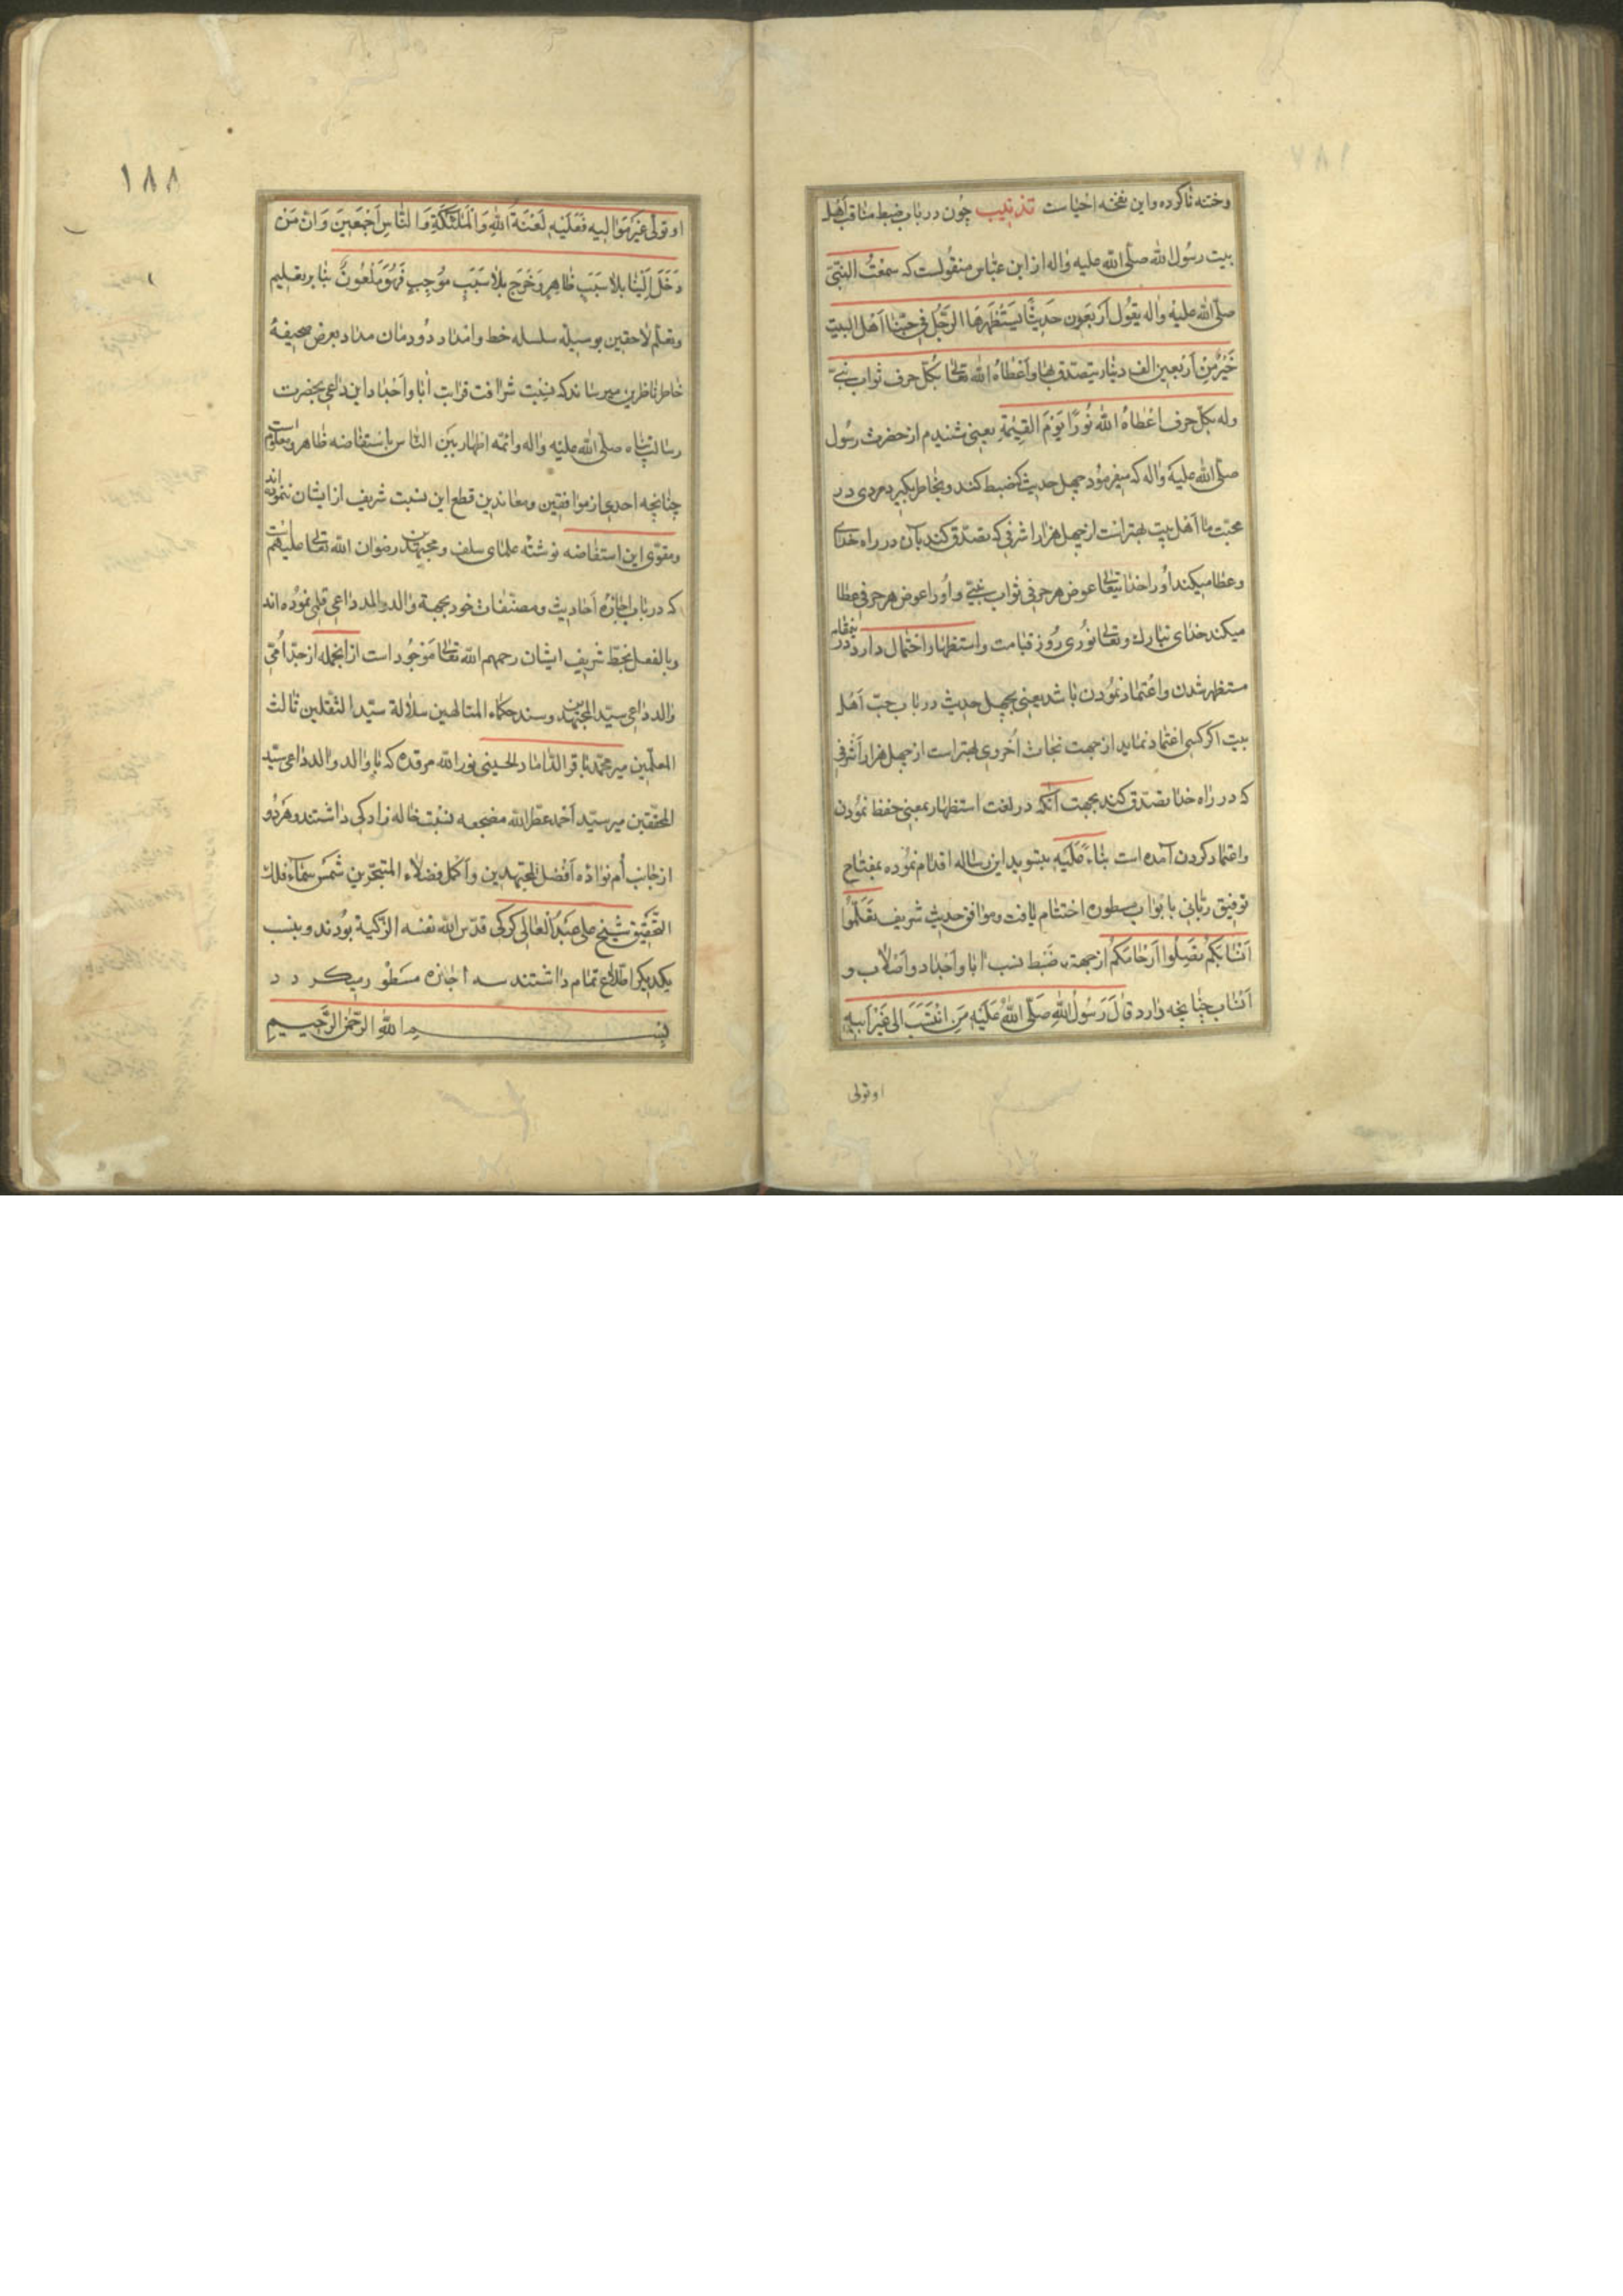 وخته ناکرده و این نفخه احیاست تذییب چون در باب ضبط مناقب اهل
بیت رسول الله صلی الله علیه واله از ابن عباس منقولست که سمعت النبی
صلی الله علیه واله یقول اربعون حدیثا یستظهرها الرجل فی حبنا اهل البیت
خیر من اربعین الف دینار یتصدق بها و اعطاه الله تعالی بکل حرف ثواب نبی
وله بکل حرف اعطاه الله نورا یوم القیمة یعنی شنیدم از حضرت رسول
صلی الله علیه واله که میفرمود چهل حدیث که ضبط کند و بخاطر بگیرد مردی در
محبت ما اهل بیت بهتر است از چهل هزار اشرفی که تصدق کند بآن در راه خدای
و عطا میکند او را خدا یتعالی عوض هر حرفی ثواب نبیی و او را عوض هر حرفی عطا
میکند خدای تبارک و تعالی نوری روز قیامت و استظهار احتمال دارد در بمقام
مستظهر شدن و اعتماد نمودن باشد یعنی بچهل حدیث در باب حب اهل
بیت اگر کسی اعتماد نماید از جهت نجات اخروی بهتر است از چهل هزار اشرفی
که در راه خدا تصدق کند بجهت آنکه در لغت استظهار بمعنی حفظ نمودن
و اعتماد کردن آمده است بناء علیه بتسوید این رساله اقدام نموده بمفتاح
توفیق ربانی بابواب مسطوره اختتام یافت و موافق حدیث شریف تعلموا
انسابکم تصلوا ارحامکم از جهت ضبط نسب ابا و اجداد و اصلاب و
انساب چنانچه وارد قال رسول الله صلی الله علیه من انتسب الی غیر ابیه
او تولی
١٨٨
او تولی غیر موالیه فعلیه لعنة الله والملئکة والناس اجمعین وان من
دخل الینا بلا سبب ظاهر وخرج بلا سبب موجب فهو ملعون بنا بر تعلیم
و تعلم لاحقین بوسیله سلسله خط و امتداد دودمان مداد بعرض صحیفهٔ
خاطر ناظرین میرساند که نسبت شرافت قرابت ابا و اجداد این داعی بحضرت
رسالت پناه صلی الله علیه واله و ائمه اطهار بین الناس باستفاضه ظاهر و معلوم است
چنانچه احدی از موافقین و معاندین قطع این نسبت شریف از ایشان ننموده اند
و مقوی این استفاضه نوشته علمای سلف و مجتهدین رضوان الله تعالی علیهم است
که در باب اجازه احادیث و مصنفات خود بجهة والد والد داعی قلمی نموده اند
و بالفعل بخط شریف ایشان رحمهم الله تعالی موجود است از انجمله از جد امی
والد داعی سید المجتهدین و سند حکماء المتالهین سلالة سید الثقلین ثالث
المعلمین میر محمد باقر الداماد الحسینی نور الله مرقده که با والد والد داعی سید
المحققین میر سید احمد عطر الله مضجعه نسبت خاله زادگی داشتند و هر دو
از جانب ام نواده افضل المجتهدین و اکمل فضلاء المتبحرین شمس سماء فلک
التحقیق شیخ علی عبد العالی کرکی قدس الله نفسه الزکیة بودند و بنسب
یکدیگر اطلاع تمام داشتند سه اجازه مسطور میگردد
بسم الله الرحمن الرحیم